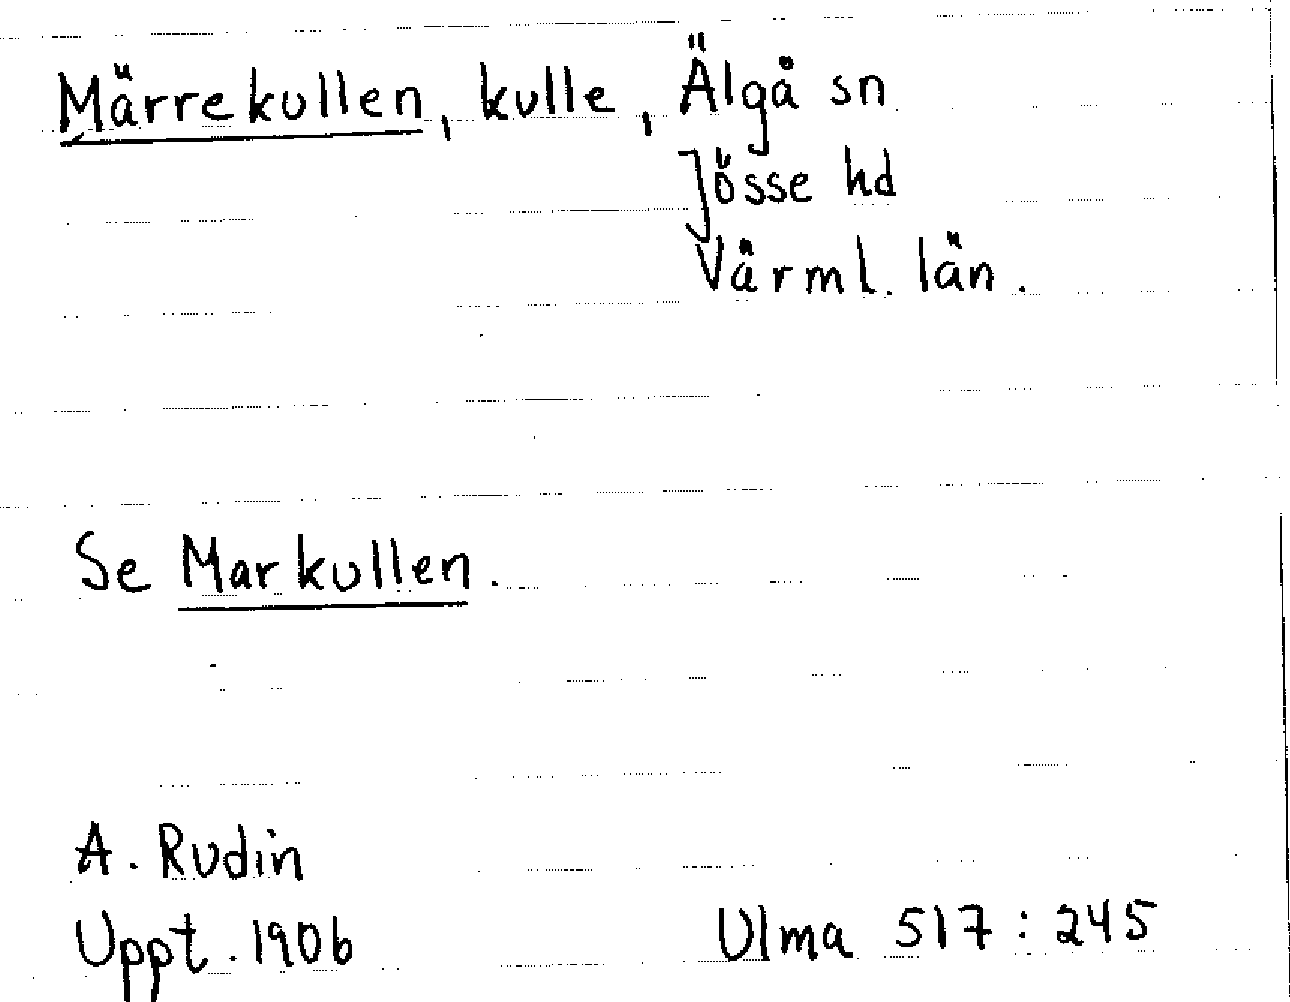 Märrekullen, kulle, Älgå sn
Jösse hd
Värml. län.
Se Markullen.
A. Rudin
Uppt. 1906
Ulma 517:245